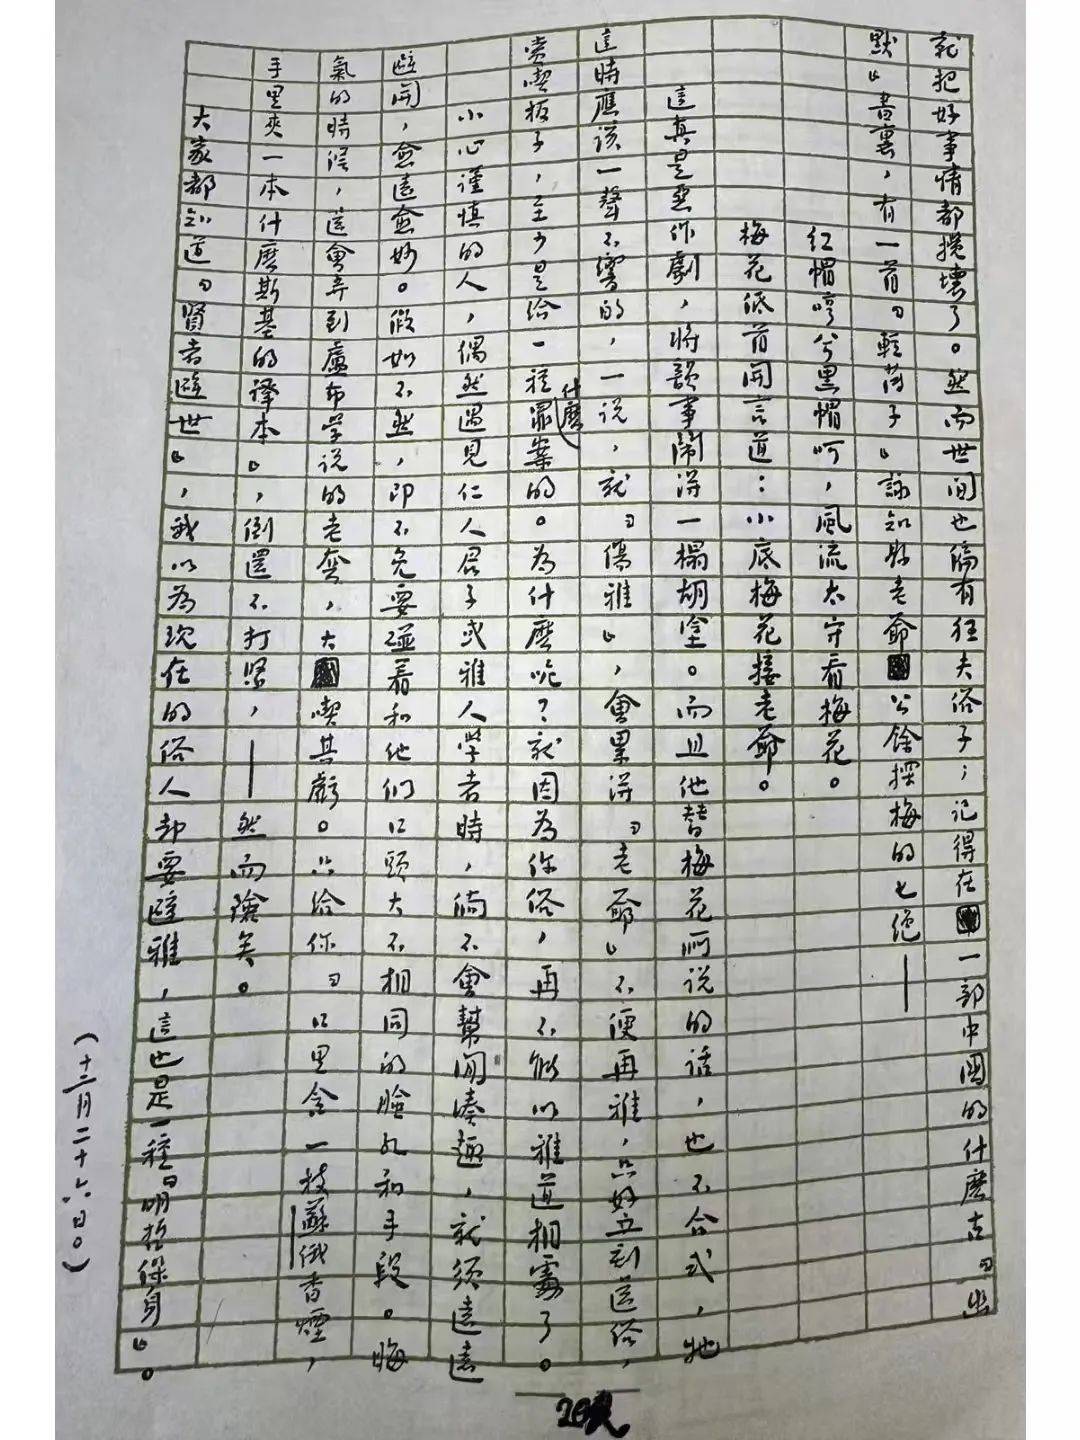 就把好事情都攪壞了。然而世間也偏有狂夫俗子；記得在一部中國的什麼古「幽
默」書裏，有一首「輕薄子」詠知縣老爺公餘探梅的七絕——
紅帽哼兮黑帽呵，風流太守看梅花。
梅花低首開言道：小底梅花接老爺。
這真是惡作劇，將韻事鬧得一榻胡塗。而且他替梅花所説的話，也不合式，牠
這時應該一聲不響的，一説，就「傷雅」，會累得「老爺」不便再雅，只好立刻還俗，
賞喫板子，至少是給一種什麼罪案的。為什麼呢？就因為你俗，再不能以雅道相處了。
小心謹慎的人，偶然遇見仁人君子或雅人學者時，倘不會幫閒湊趣，就須遠遠
避開，愈遠愈妙。假如不然，即不免要碰着和他們口頭大不相同的臉孔和手段。晦
氣的時候，還會弄到盧布学説的老套，大喫其虧。只給你「口里含一枝蘇俄香煙，
手里夾一本什麼斯基的譯本」，倒還不打緊，——然而險矣。
大家都知道「賢者避世」，我以為現在的俗人却要避雅，這也是一種「明哲保身」。
（十二月二十六日。）